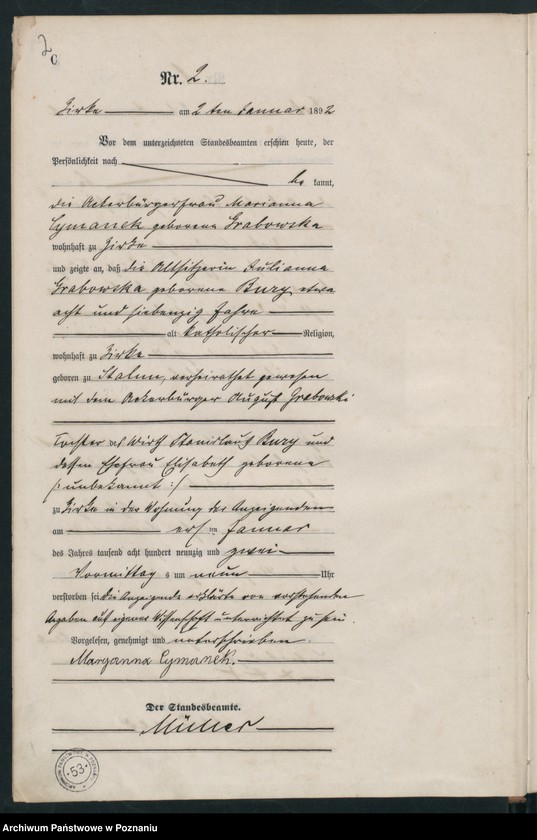 2
C
Nr. 2.
Zirke am 2 ten Januar 1892
Vor dem unterzeichneten Standesbeamten erschien heute, der
Persönlichkeit nach
be kannt,
die Ackerbürgerfrau Marianna
Cymanek geborene Grabowska
wohnhaft zu Zirke
und zeigte an, daß die Altsitzerin Julianna
Grabowska geborene Bury, etwa
acht und siebenzig Jahre
alt katholischer Religion,
wohnhaft zu Zirke
geboren zu verheirathet gewesen
mit dem Ackerbürger August Grabowski
Tochter des Wirth Stanislaus Bury und
dessen Ehefrau Elisabeth geborene
/: unbekannt :/
zu Zirke in der Wohnung der Anzeigenden
am ersten Januar
des Jahres tausend acht hundert neunzig und zwei
Vormittags um neun Uhr
verstorben sei. die Anzeigende erklärte von vorstehenden
Angaben aus eigener Wissenschaft unterrichtet zu sein.
Vorgelesen, genehmigt und unterschrieben
Maryanna Cymanek.
Der Standesbeamte.
Müller
53
Archiwum Państwowe w Poznaniu